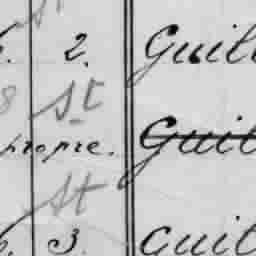 2. Guil
8 St
propre. Guil
St
3. Guil